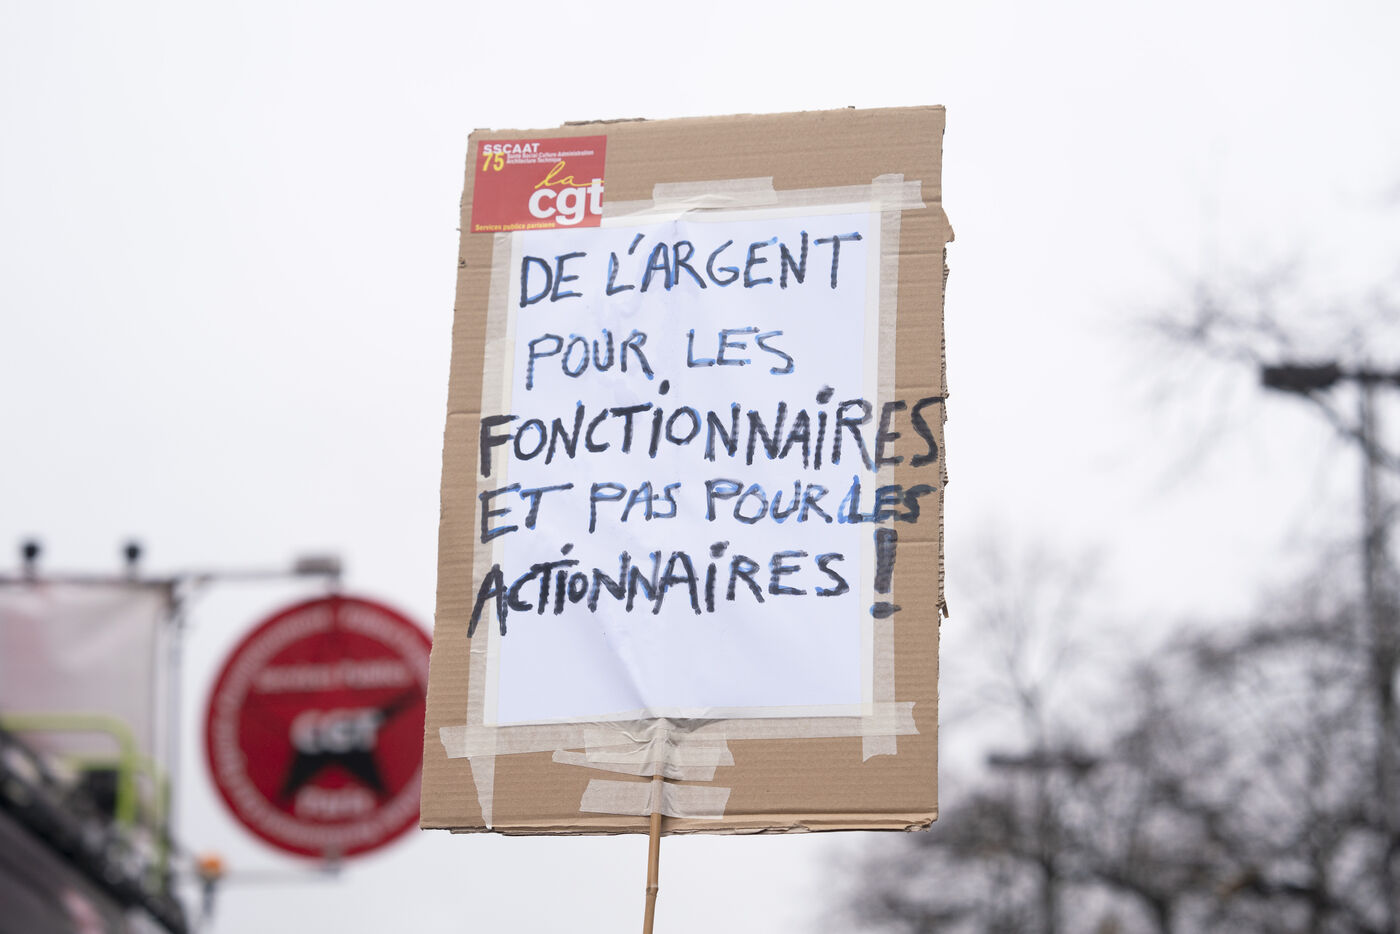 SSCAAT
75 Santé Social Culture Administration
Architecture Technique
la
cgt
Services publics parisiens
DE L'ARGENT
POUR LES
FONCTIONNAIRES
ET PAS POUR LES
ACTIONNAIRES !
CGT